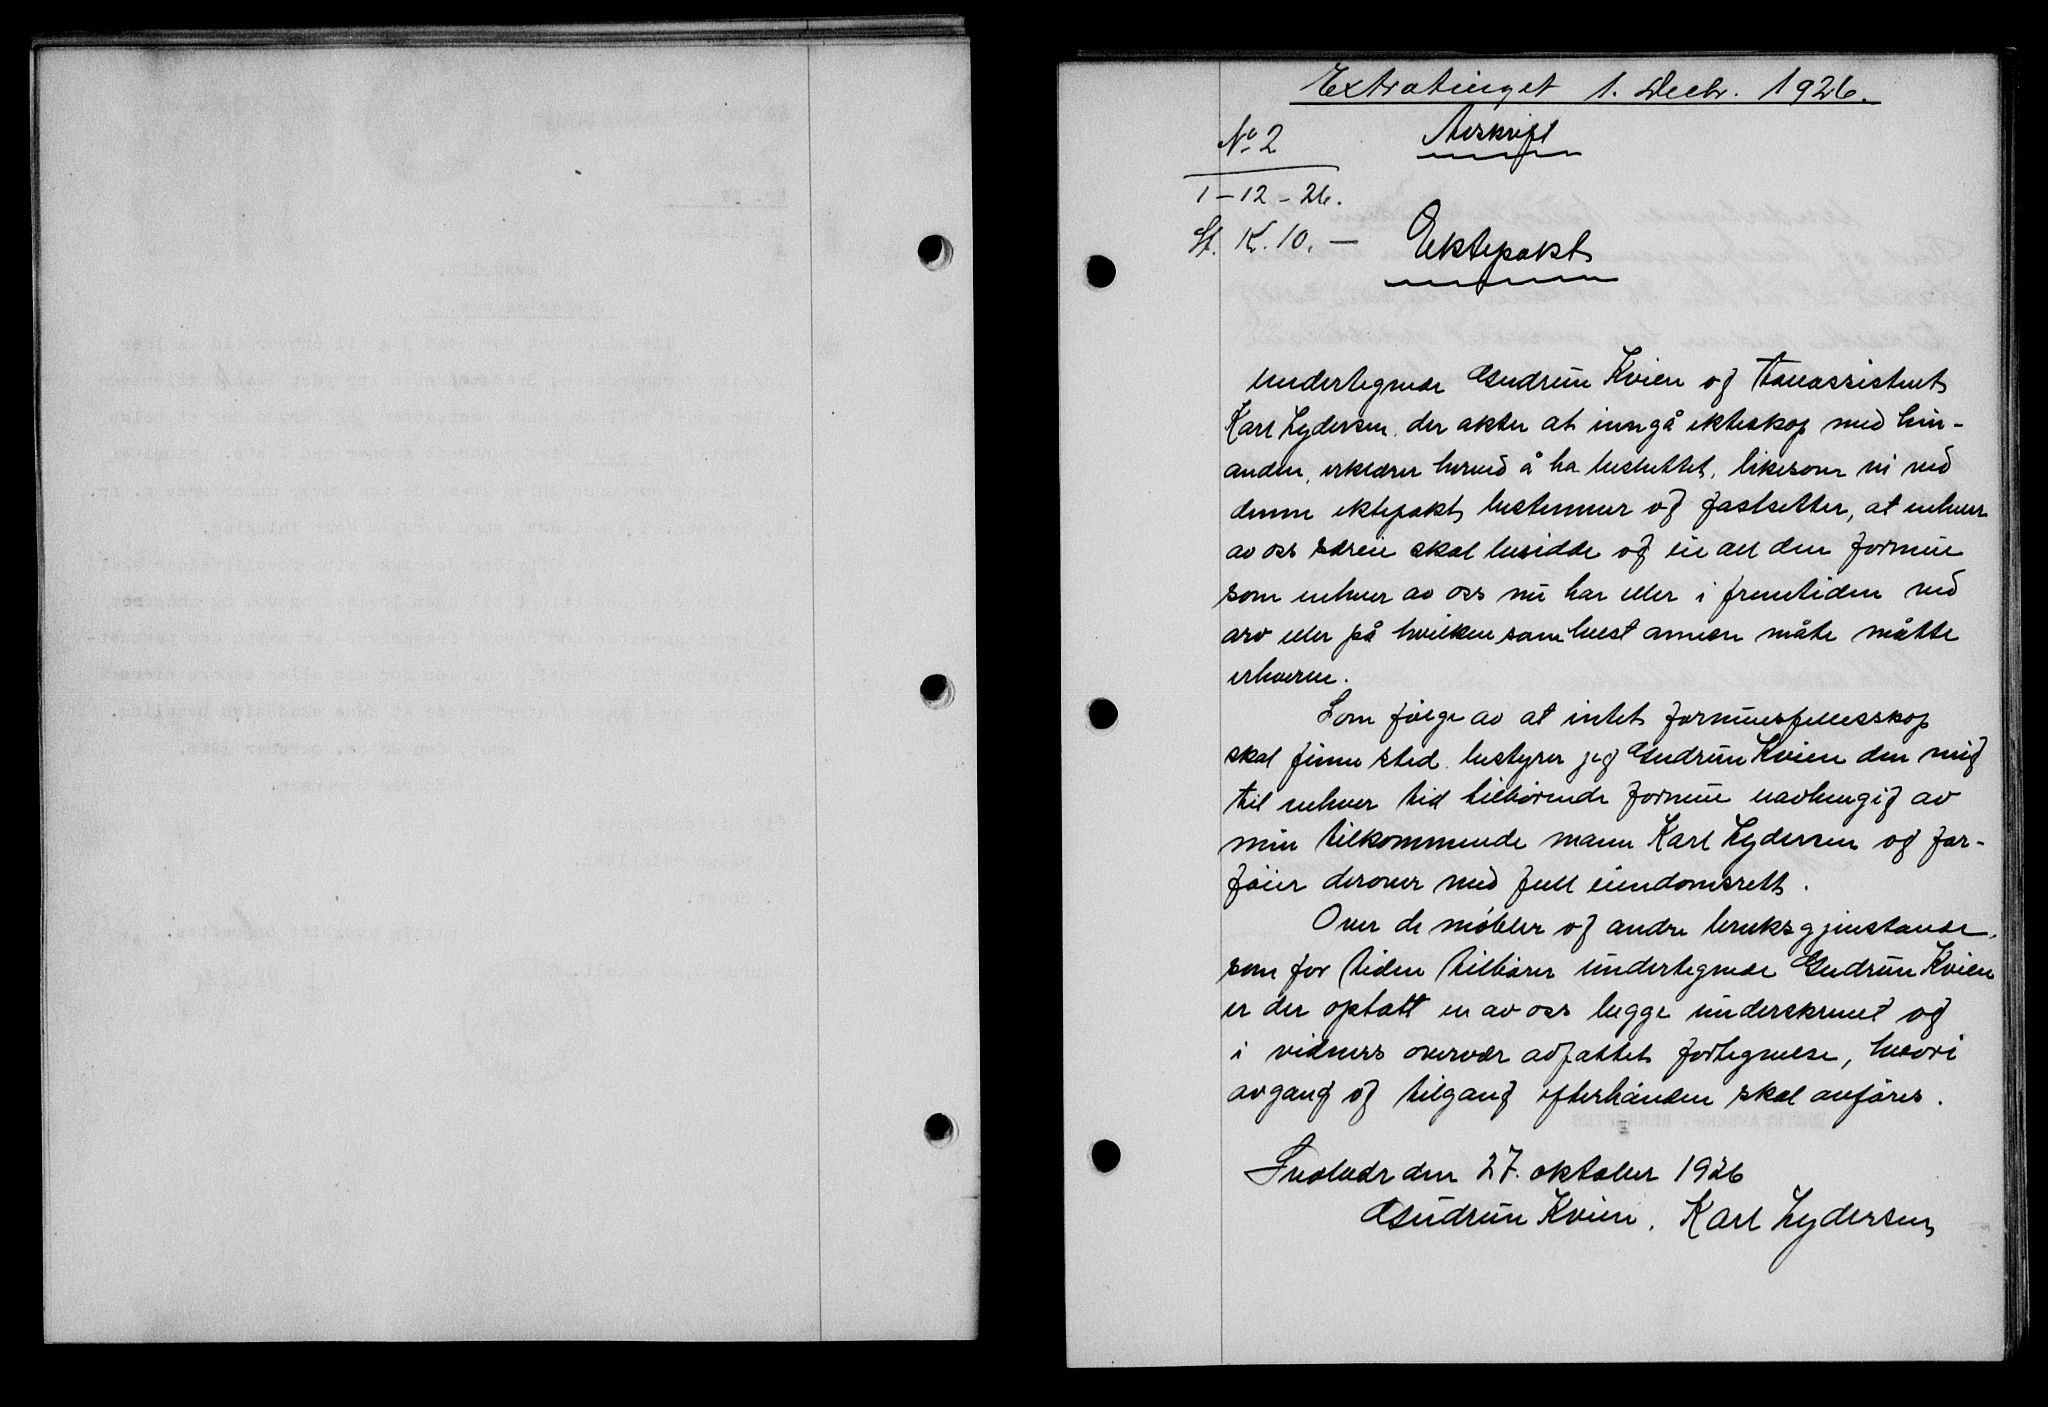 Extratinget 1. Decbr. 1926.
No 2
Avskrift
1-12-26.
St. K. 10.-
Ektepakt
Undertegnede Gudrun Kvien og Tollassistent
Karl Lydersen, der akter at inngå ekteskap med hin-
anden, erklærer herved å ha besluttet, likesom vi ved
denne ektepakt bestemmer og fastsetter, at enhver
av oss særeie skal besidde og eie all den formue
som enhver av oss nu har eller i fremtiden ved
arv eller på hvilkensomhelst annen måte måtte
erhverve.
Som følge av at intet formuesfellesskap
skal finne sted bestyrer jeg Gudrun Kvien den mig
til enhver tid tilhørende formue uavhengig av
min tilkommende mann Karl Lydersen og for-
føier derover med full eiendomsrett.
Over de møbler og andre bruksgjenstande,
som for tiden tilhører undertegnede Gudrun Kvien
er der optatt en av oss begge underskrevet og
i vidners overvær avfattet fortegnelse, hvori
avgang og tilgang efterhånden skal anføres.
Svolvær den 27. oktober 1926
Gudrun Kvien. Karl Lydersen